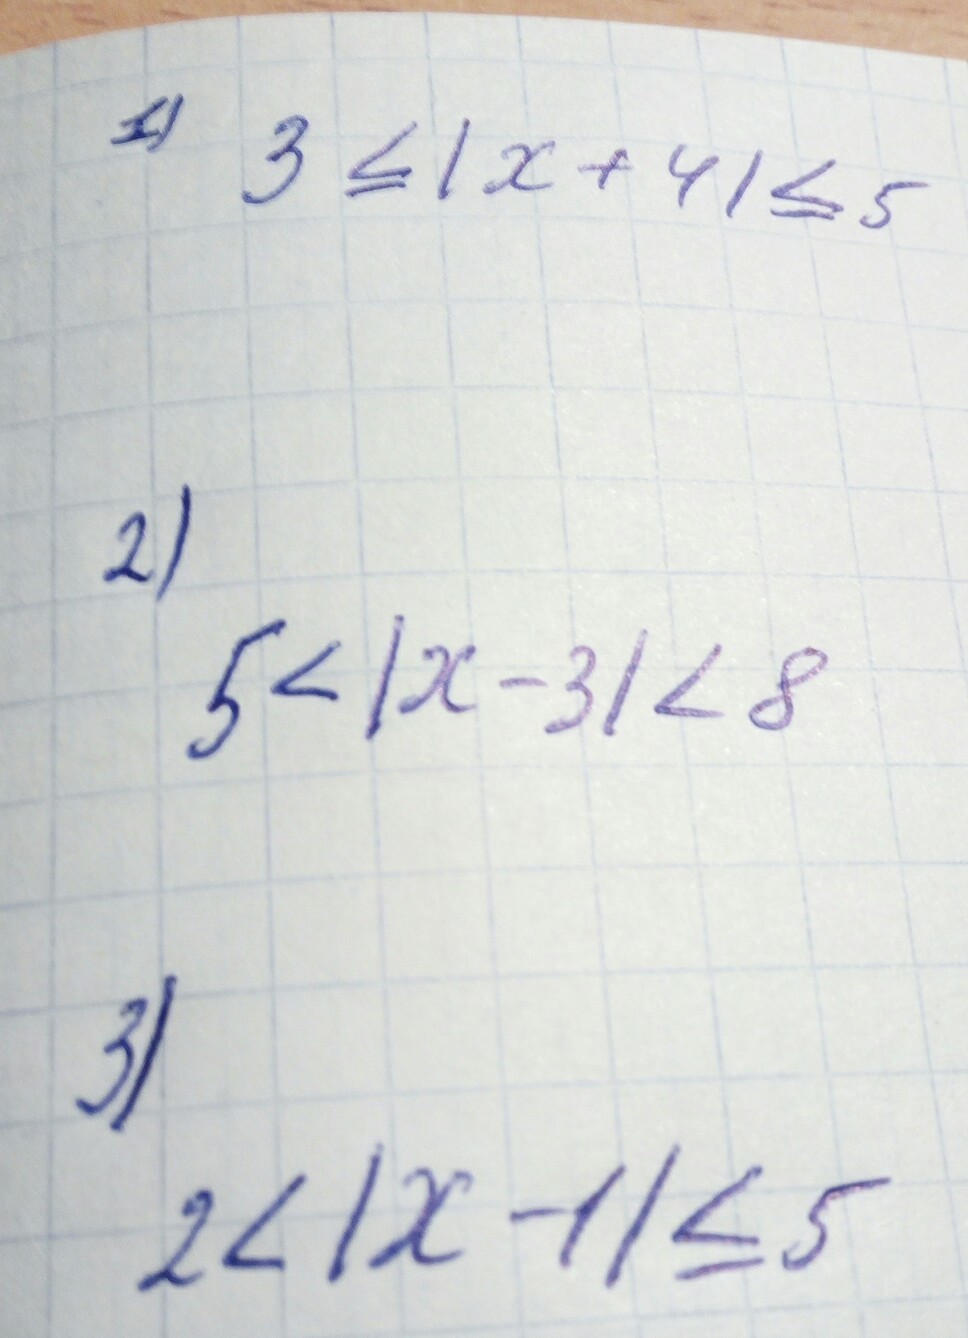 1) 3 ≤ |x + 4| ≤ 5
2)
5 < |x - 3| < 8
3)
2 < |x - 1| ≤ 5